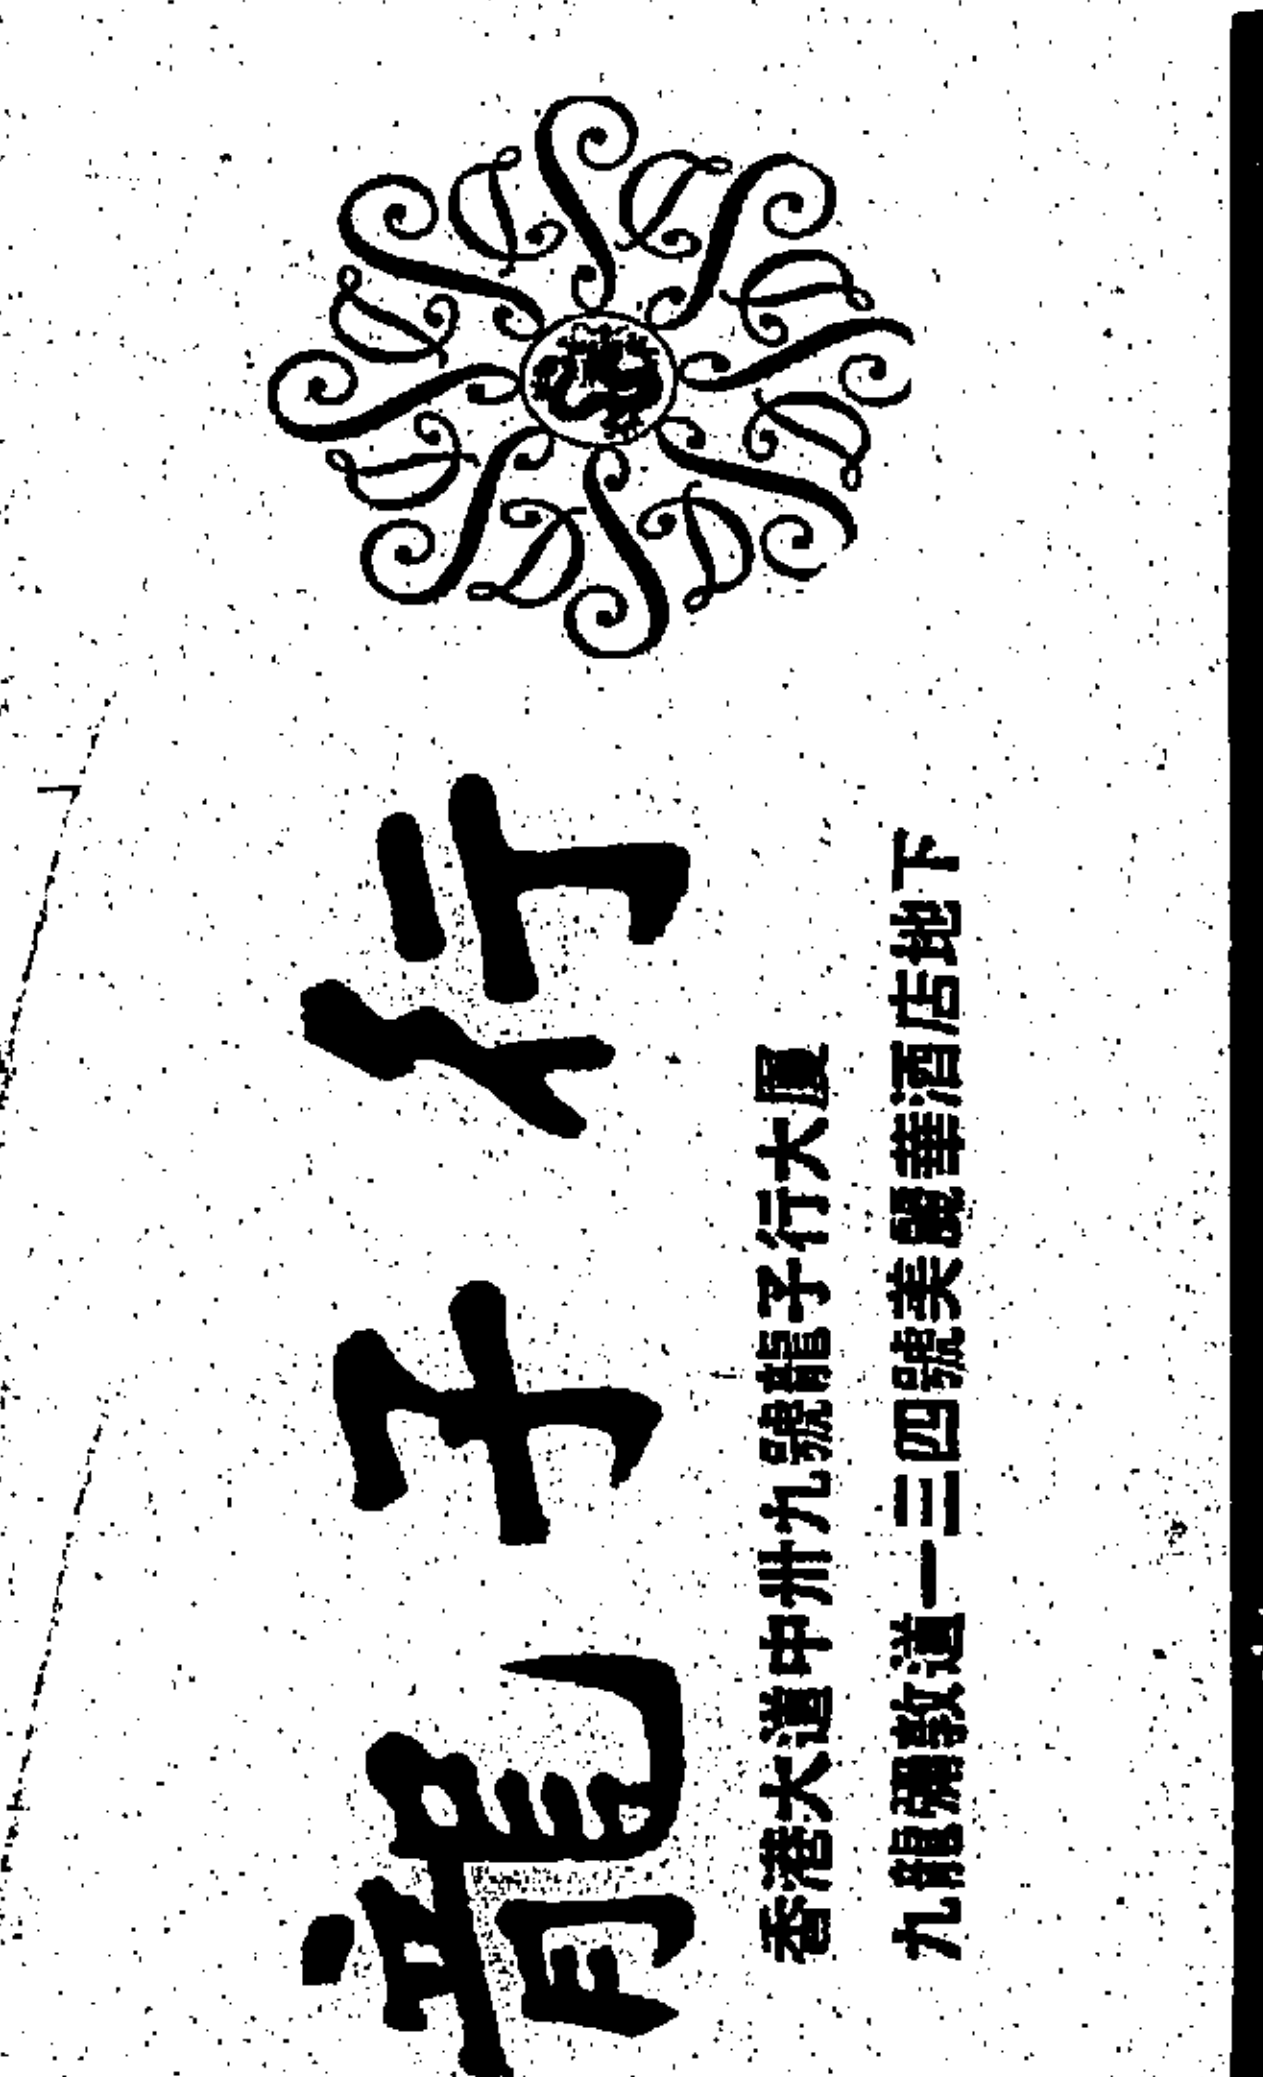 龍子行
香港大道中卅九號龍子行大厦
九龍彌敦道一三四號美麗華酒店地下